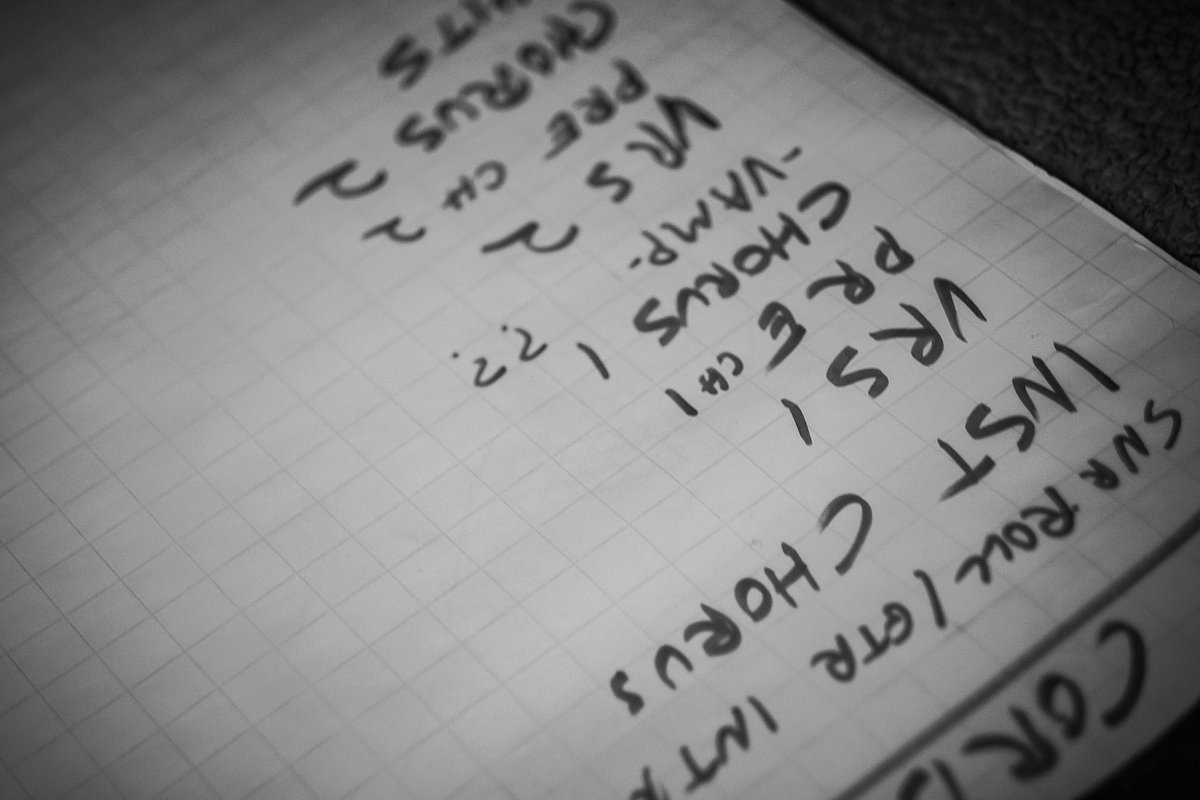 SNR ROLL / GTR INT
INST CHORUS
VRS 1
PRE CH 1
CHORUS 1
-VAMP. ?.?.
VRS 2
PRE CH 2
CHORUS 2